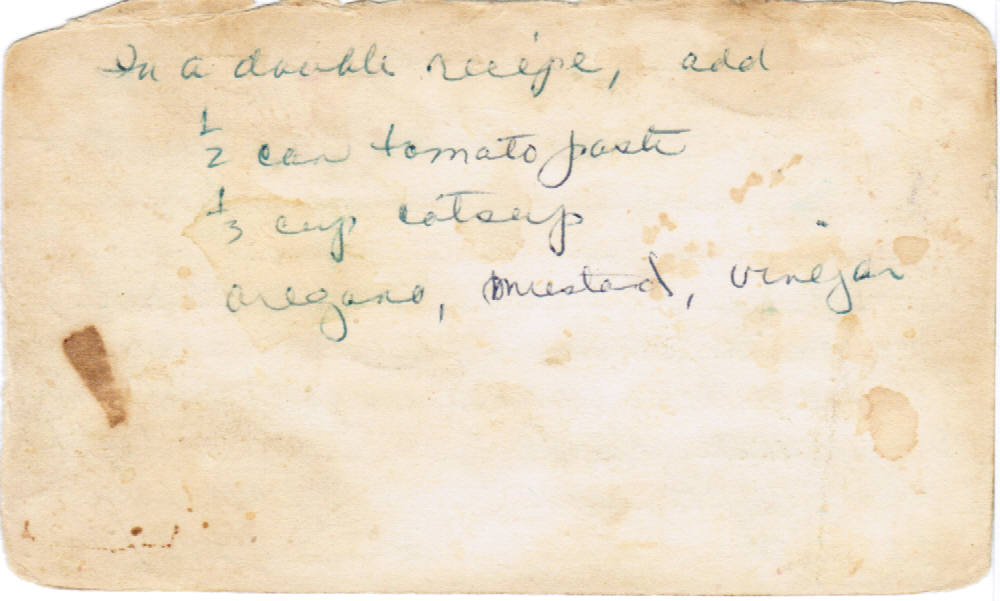 In a double recipe, add
½ can tomato paste
⅓ cup catsup
oregano, mustard, vinegar